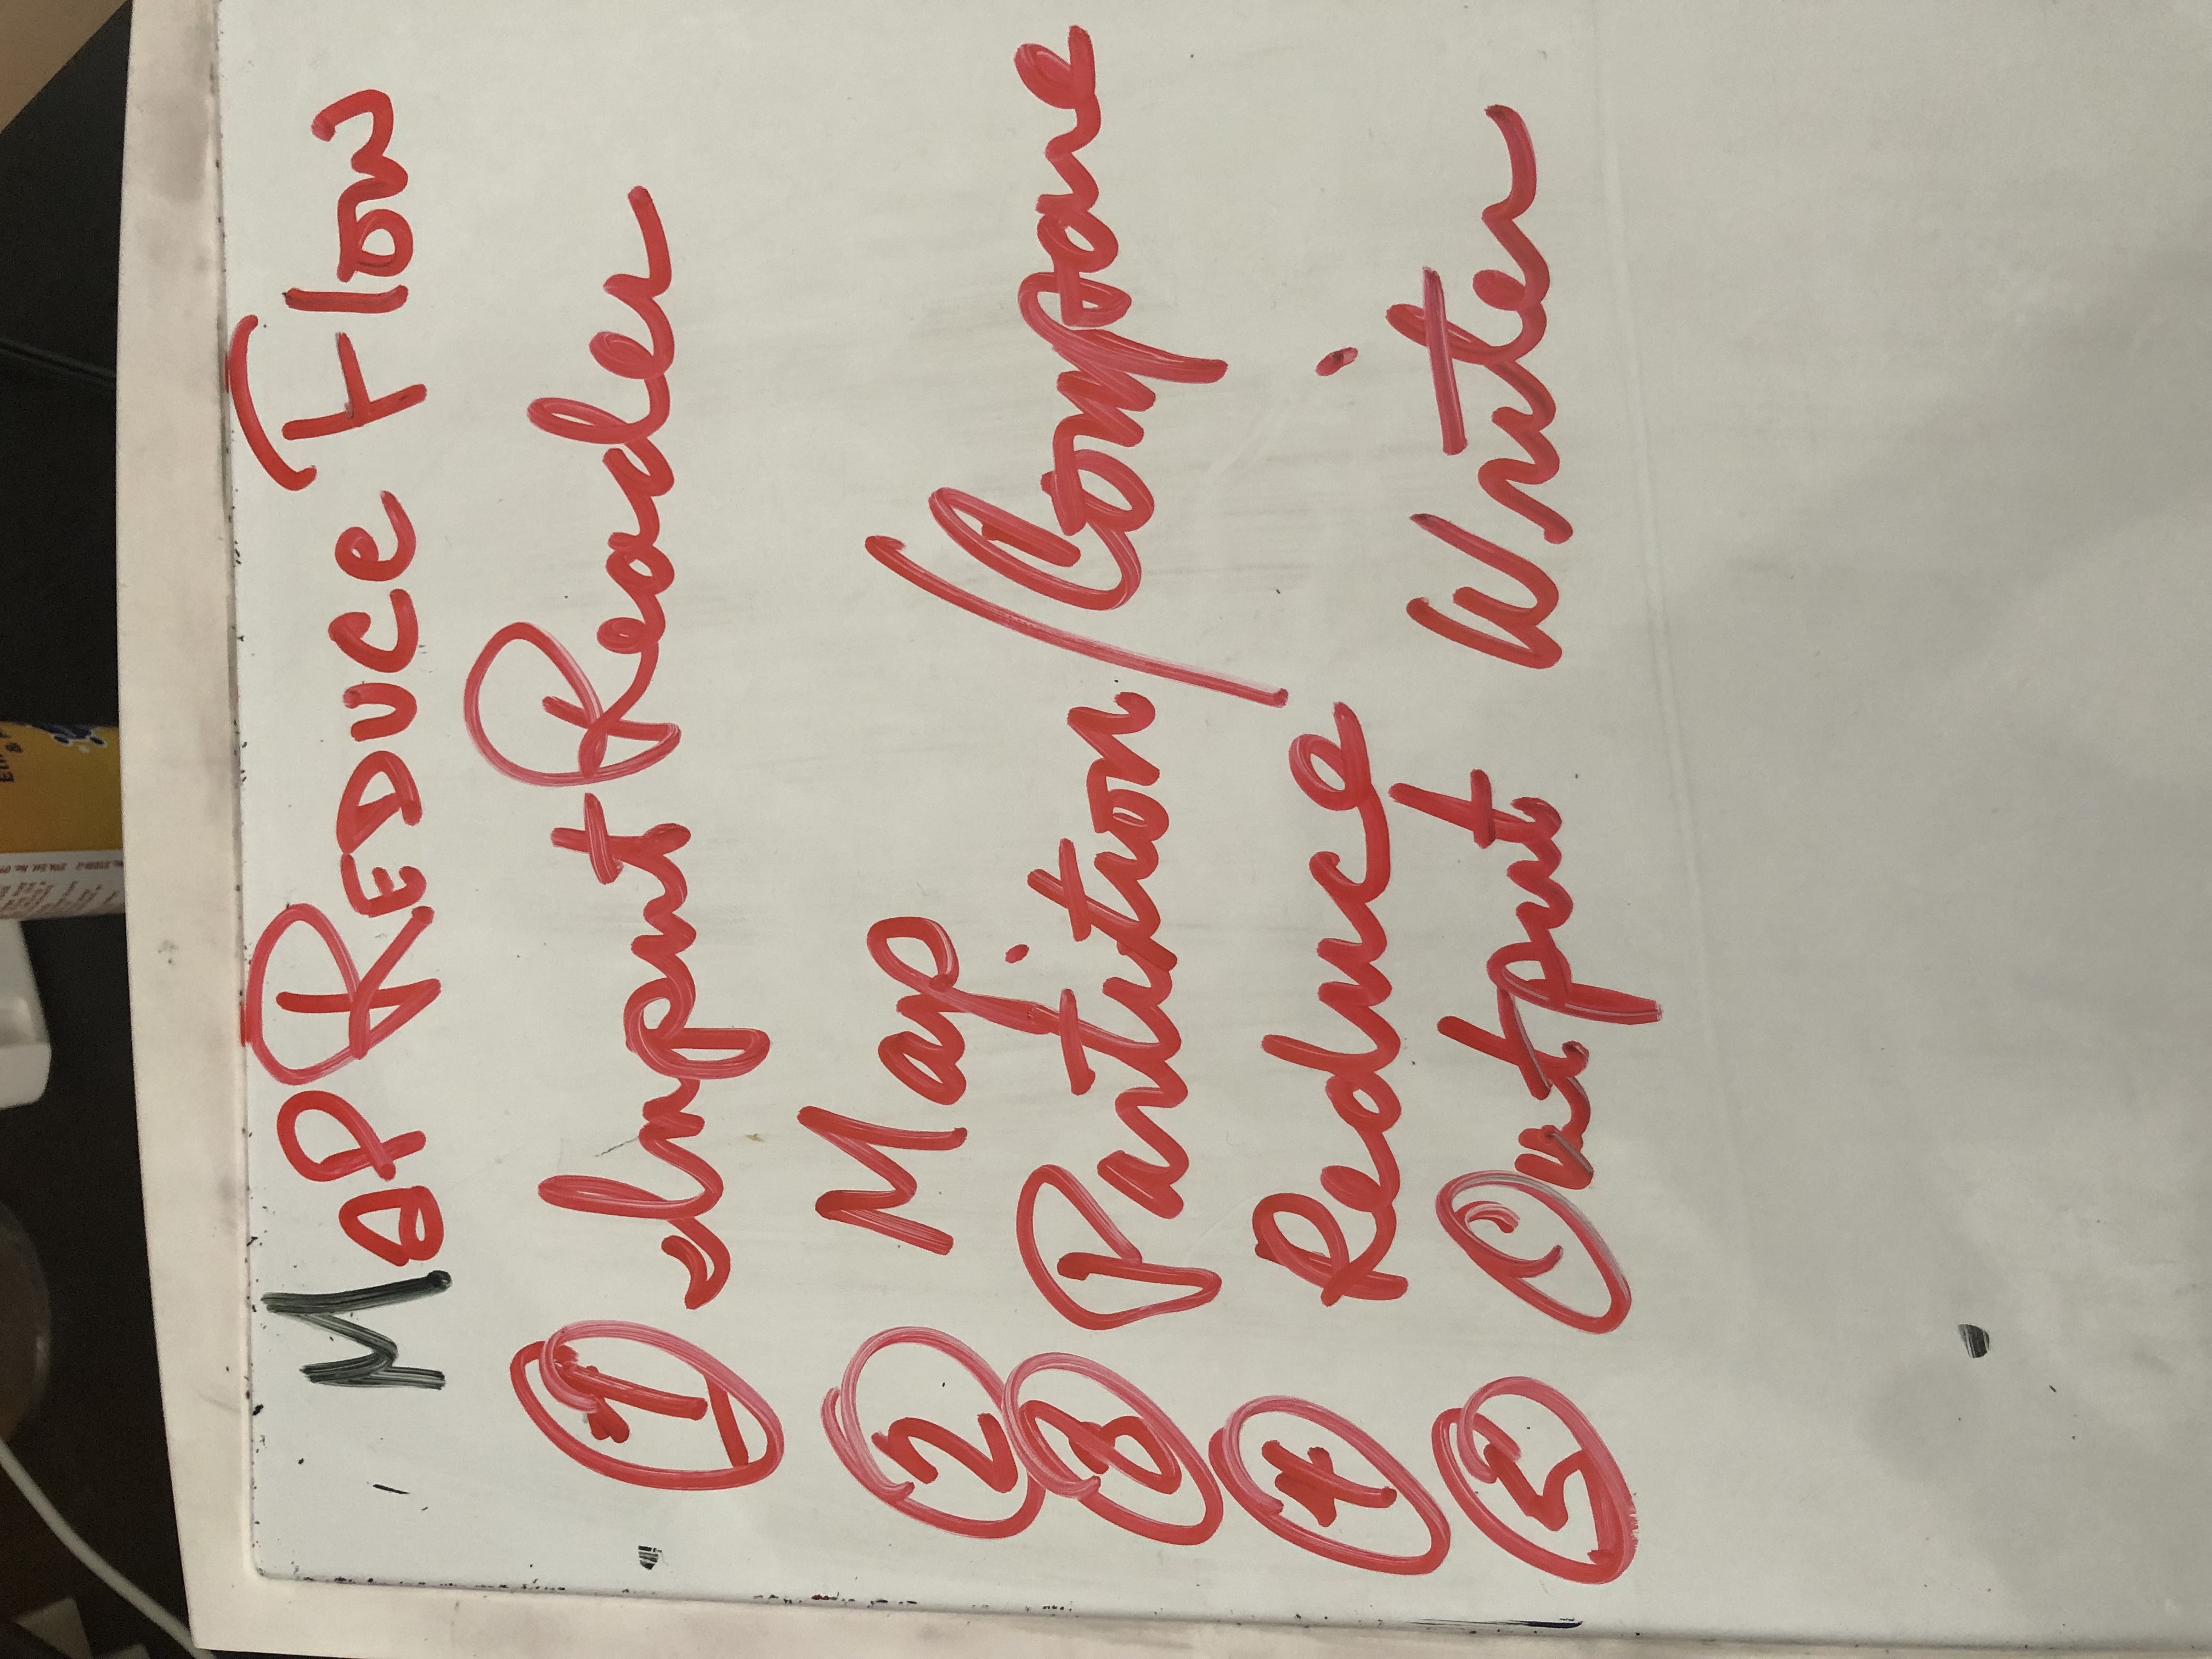 MaP REDUCe Flow
1 Input Reader
2 Map
3 Partition/Compare
4 Reduce
5 Output Writer